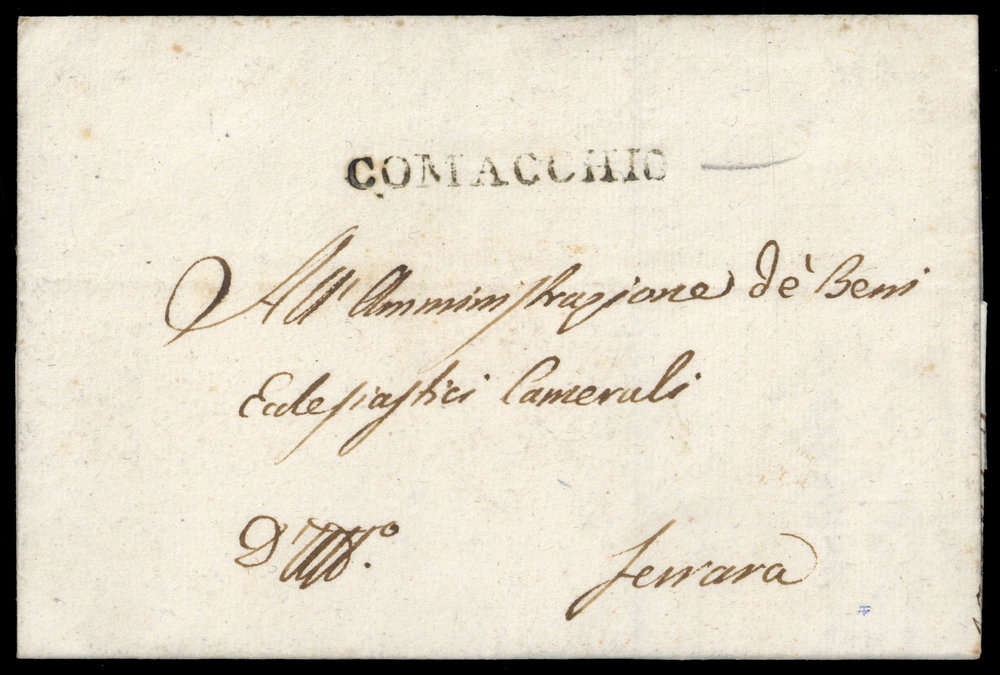 COMACCHIO
All' Amministrazione dè Beni
Eclesiastici Camerali
D' Uff.º
Ferrara